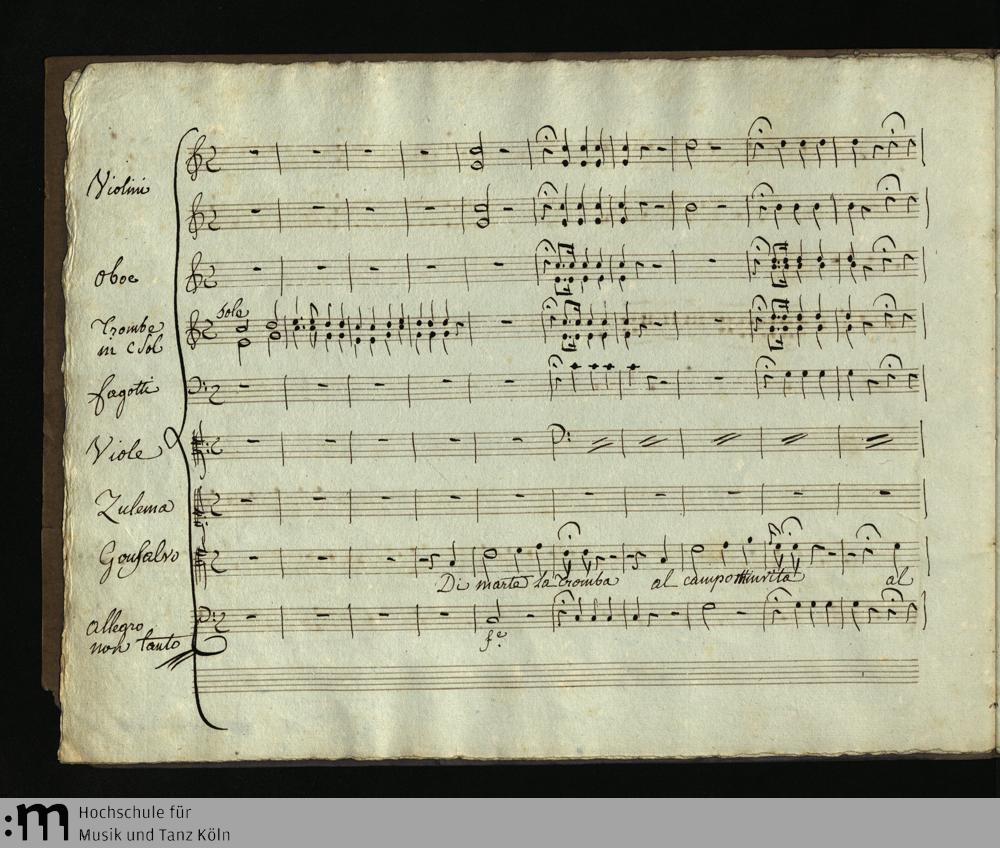 Violini
Oboe
sole
Trombe
in C Sol
fagotti
Viole
Zulema
Gonsalvo
Di marte la tromba al campo m'invita al
Allegro
non tanto
:m Hochschule für
Musik und Tanz Köln